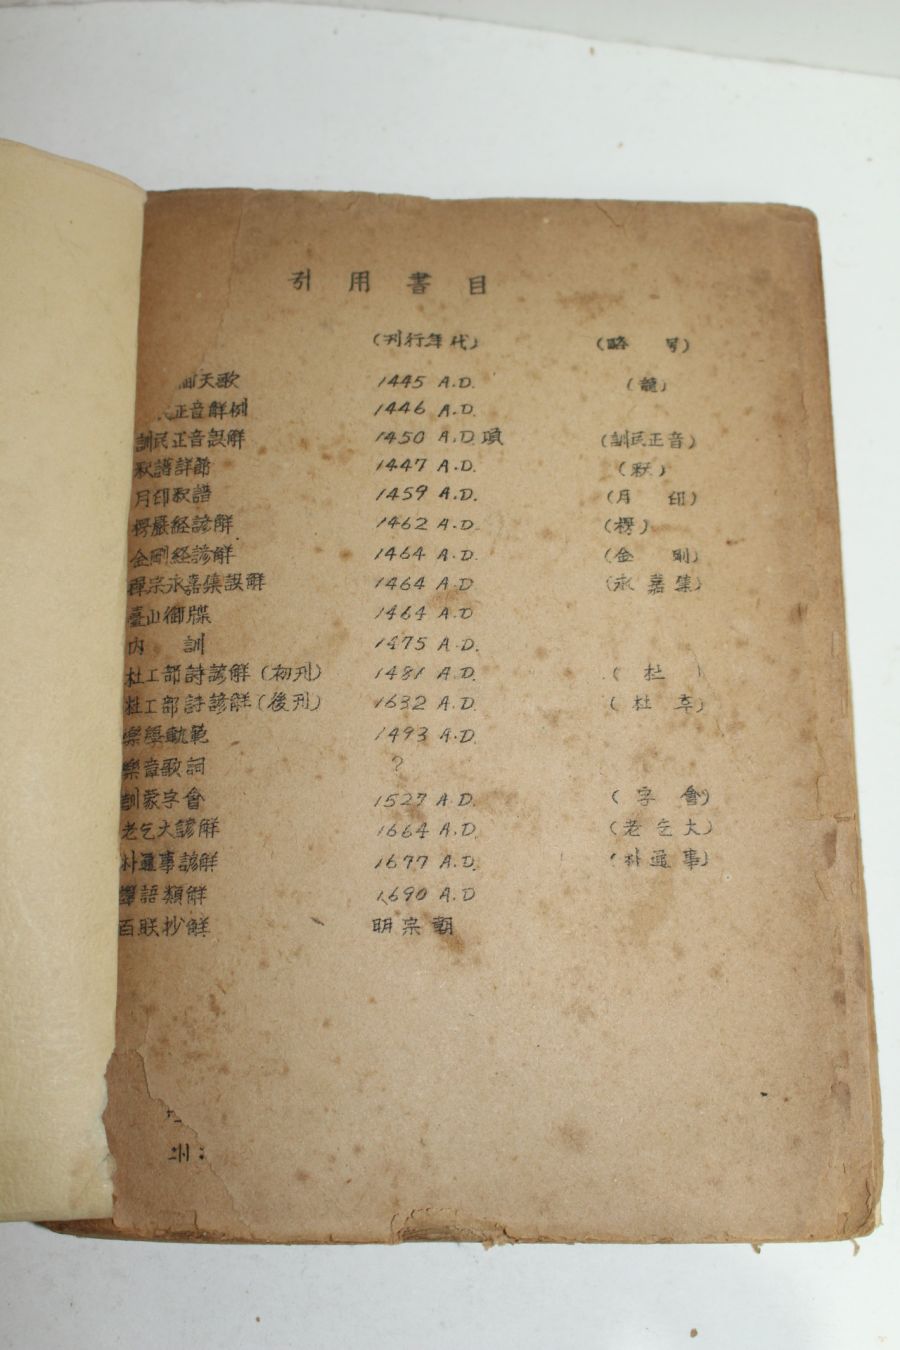 引用書目
(刊行年代) (略号)
御天歌 1445 A.D. (龍)
民正音解例 1446 A.D.
訓民正音諺解 1450 A.D.項 (訓民正音)
釈譜詳節 1447 A.D. (釈)
月印釈譜 1459 A.D. (月印)
楞嚴経諺解 1462 A.D. (楞)
金剛経諺解 1464 A.D. (金剛)
禪宗永嘉集諺解 1464 A.D (永嘉集)
臺山御牒 1464 A.D
内訓 1475 A.D.
杜工部詩諺解(初刊) 1481 A.D. (杜)
杜工部詩諺解(後刊) 1632 A.D. (杜重)
樂學軌範 1493 A.D.
樂章歌詞 ?
訓蒙字會 1527 A.D. (字會)
老乞大諺解 1664 A.D. (老乞大)
朴通事諺解 1677 A.D. (朴通事)
譯語類解 1690 A.D
百联抄解 明宗朝